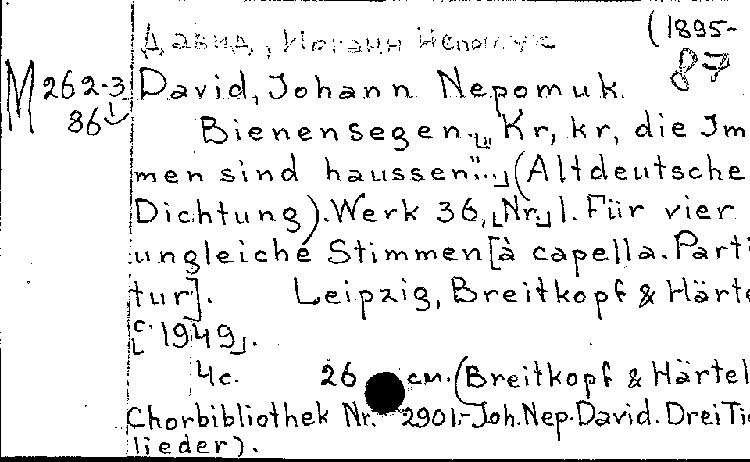 Давид, Иоганн Непомук (1895-
87
M 262-3
86
David, Johann Nepomuk.
Bienensegen. „Kr, kr, die Im
men sind haussen". (Altdeutsche
Dichtung). Werk 36, [Nr.] 1. Für vier
ungleiche Stimmen [à capella. Parti
tur]. Leipzig, Breitkopf & Härte
[c 1949].
4 c. 26 см. (Breitkopf & Härtel
Chorbibliothek Nr. 2901.-Joh. Nep. David. Drei Ti
lieder).